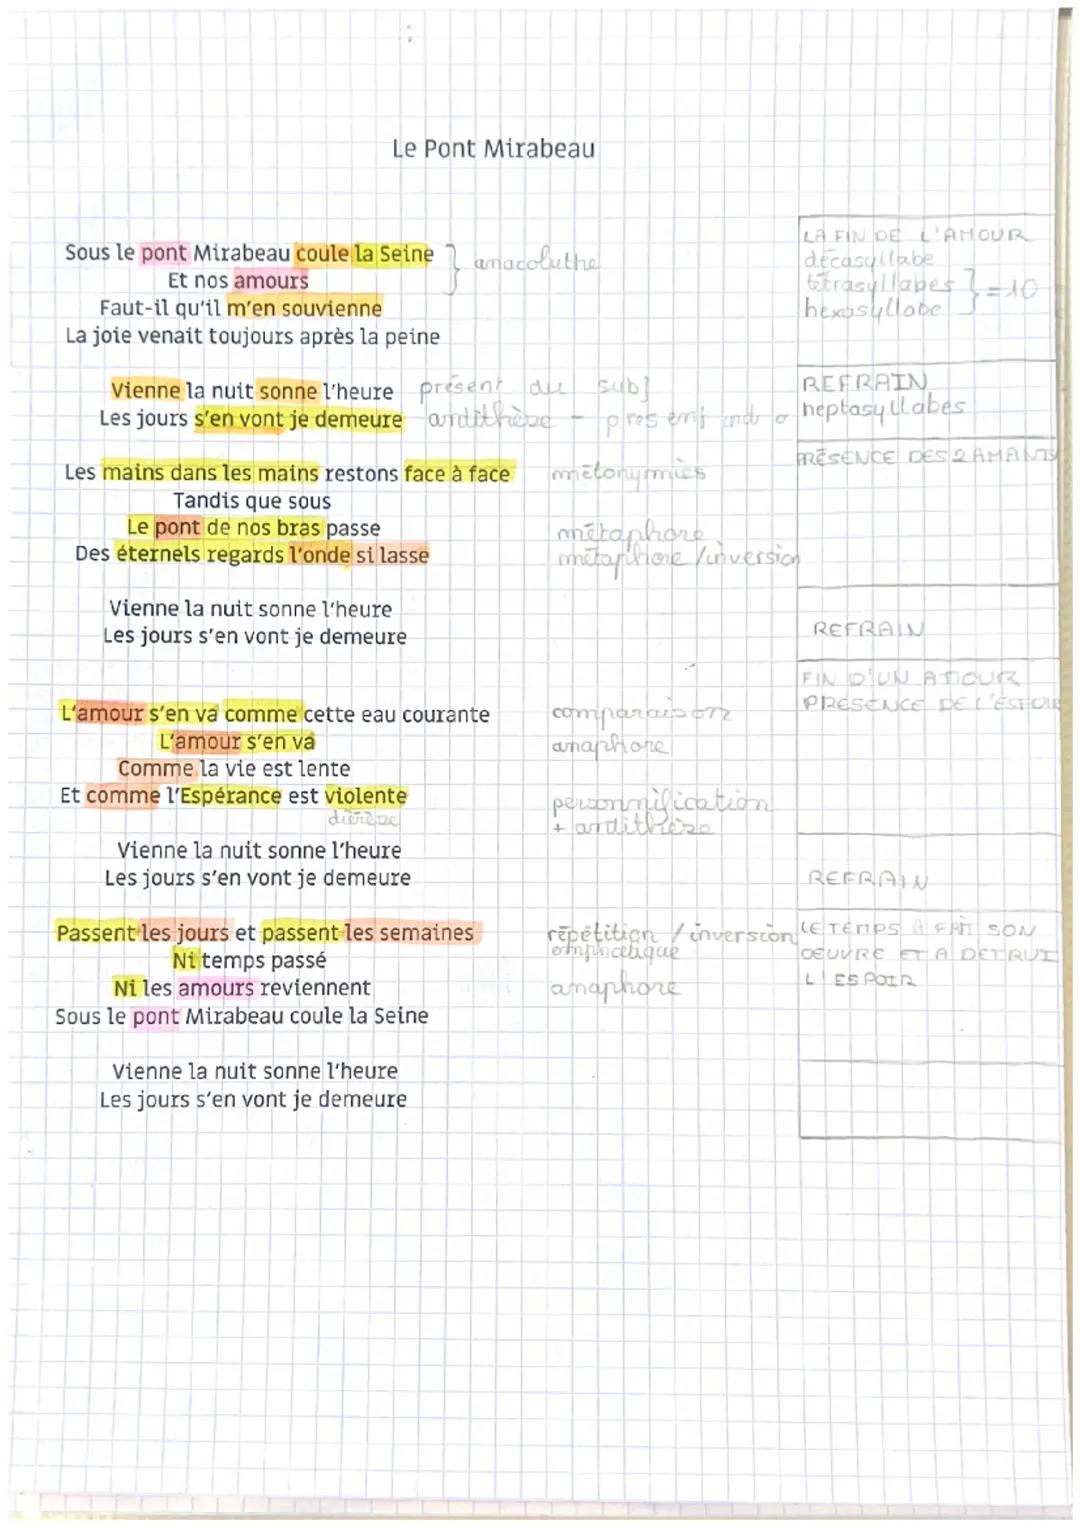 Le Pont Mirabeau
Sous le pont Mirabeau coule la Seine
Et nos amours
anacoluthe
Faut-il qu'il m'en souvienne
La joie venait toujours après la peine
LA FIN DE L'AMOUR
décasyllabe
tétrasyllabes
hexasyllabe
} = 10
Vienne la nuit sonne l'heure présent du subj
Les jours s'en vont je demeure antithèse - present ind
REFRAIN
heptasyllabes
Les mains dans les mains restons face à face métonymies
Tandis que sous
Le pont de nos bras passe métaphore
Des éternels regards l'onde si lasse métaphore / inversion
PRÉSENCE DES 2 AMANTS
Vienne la nuit sonne l'heure
Les jours s'en vont je demeure
REFRAIN
L'amour s'en va comme cette eau courante comparaison
L'amour s'en va anaphore
Comme la vie est lente
Et comme l'Espérance est violente personnification
diérèse + antithèse
FIN D'UN AMOUR
PRESENCE DE L'ESPOIR
Vienne la nuit sonne l'heure
Les jours s'en vont je demeure
REFRAIN
Passent les jours et passent les semaines répétition / inversion
Ni temps passé
Ni les amours reviennent anaphore
Sous le pont Mirabeau coule la Seine
LE TEMPS A FAIT SON
OEUVRE ET A DETRUI
L'ESPOIR
Vienne la nuit sonne l'heure
Les jours s'en vont je demeure